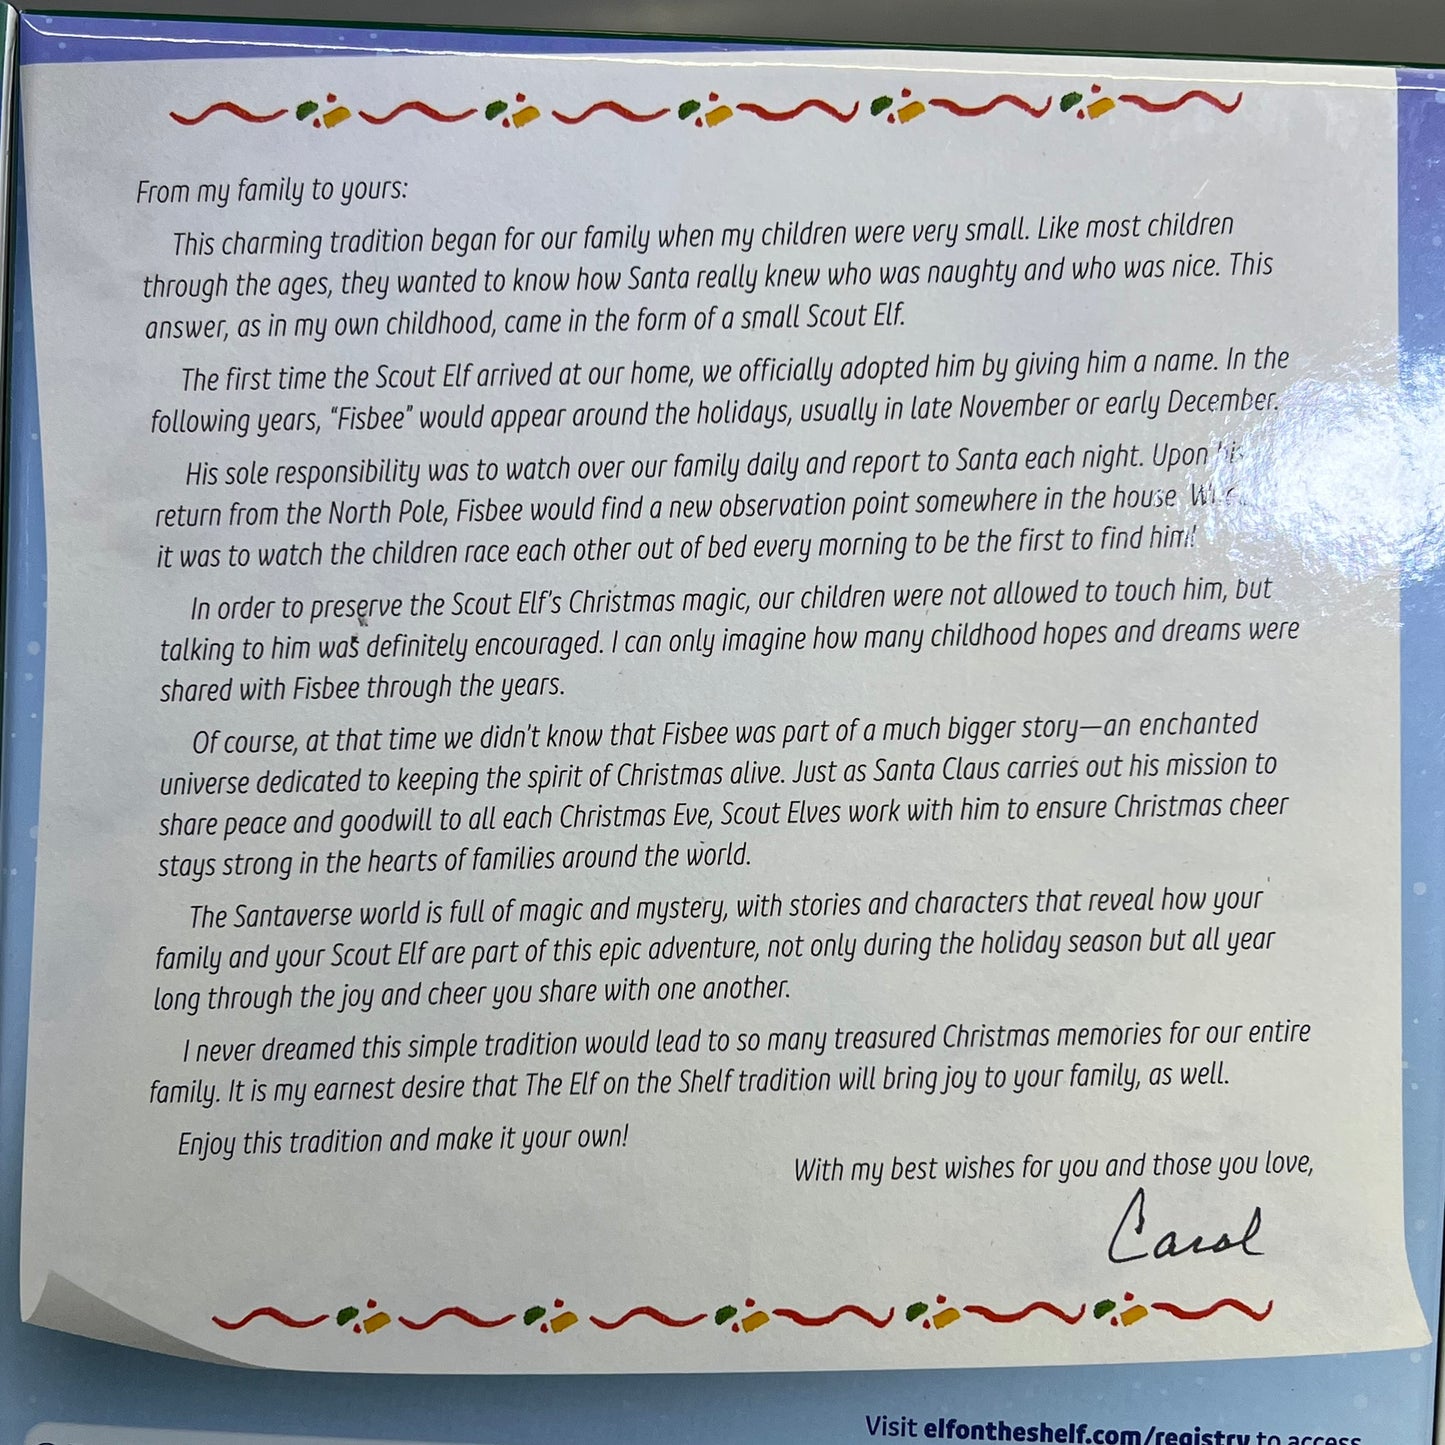 From my family to yours:
This charming tradition began for our family when my children were very small. Like most children
through the ages, they wanted to know how Santa really knew who was naughty and who was nice. This
answer, as in my own childhood, came in the form of a small Scout Elf.
The first time the Scout Elf arrived at our home, we officially adopted him by giving him a name. In the
following years, “Fisbee” would appear around the holidays, usually in late November or early December.
His sole responsibility was to watch over our family daily and report to Santa each night. Upon his
return from the North Pole, Fisbee would find a new observation point somewhere in the house.
it was to watch the children race each other out of bed every morning to be the first to find him!
In order to preserve the Scout Elf’s Christmas magic, our children were not allowed to touch him, but
talking to him was definitely encouraged. I can only imagine how many childhood hopes and dreams were
shared with Fisbee through the years.
Of course, at that time we didn’t know that Fisbee was part of a much bigger story—an enchanted
universe dedicated to keeping the spirit of Christmas alive. Just as Santa Claus carries out his mission to
share peace and goodwill to all each Christmas Eve, Scout Elves work with him to ensure Christmas cheer
stays strong in the hearts of families around the world.
The Santaverse world is full of magic and mystery, with stories and characters that reveal how your
family and your Scout Elf are part of this epic adventure, not only during the holiday season but all year
long through the joy and cheer you share with one another.
I never dreamed this simple tradition would lead to so many treasured Christmas memories for our entire
family. It is my earnest desire that The Elf on the Shelf tradition will bring joy to your family, as well.
Enjoy this tradition and make it your own!
With my best wishes for you and those you love,
Carol
Visit elfontheshelf.com/registry to access